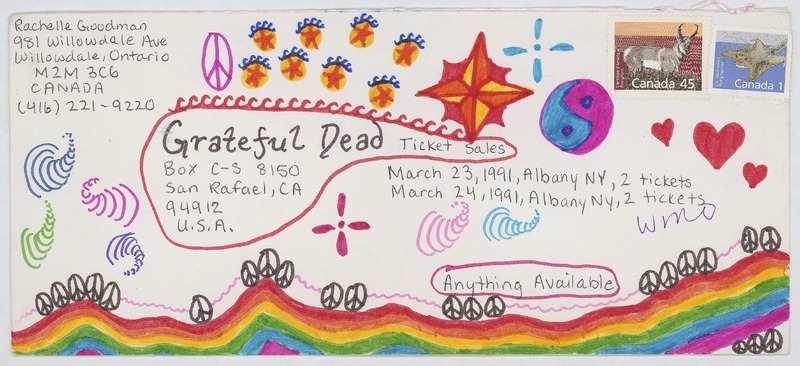 Rachelle Goodman
981 Willowdale Ave
Willowdale, Ontario
M2M 3C6
CANADA
(416) 221-9220
Canada 45
Canada 1
Grateful Dead Ticket Sales
Box C-S 8150
San Rafael, CA
94912
U.S.A.
March 23, 1991, Albany NY, 2 tickets
March 24, 1991, Albany NY, 2 tickets
WMO
Anything Available